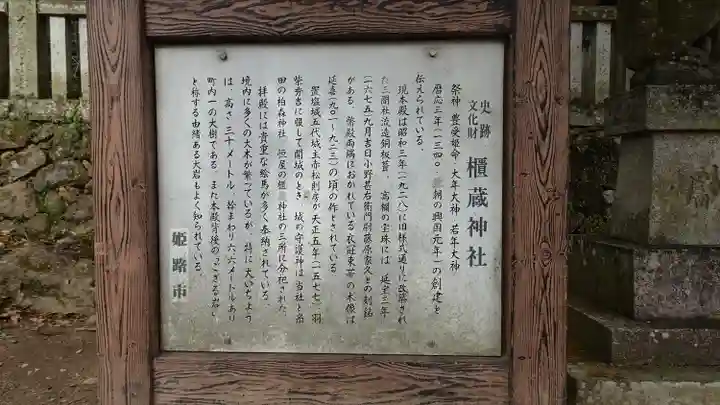 史跡
文化財
櫃蔵神社
祭神 豊受姫命・大年大神 若年大神
暦応三年(一三四〇・ 朝の興国元年)の創建と
伝えられている。
現本殿は昭和三年(一九二八)に旧様式通りに改築され
た三間社流造銅板葺、高欄の宝珠には、延宝三年
(一六七五)九月吉日小野甚右衛門尉藤原家久との刻銘
がある。祭殿両隅におかれている衣冠束帯の木像は
延喜(九〇一〜九二三)の頃の作とされている。
置塩城五代城主赤松則房が天正五年(一五七七)羽
柴秀吉に屈して開城のとき、城の守護神は当社と糸
田の柏森神社、恒屋の 神社の三所に分祀された。
拝殿には貴重な絵馬が多く奉納されている。
境内に多くの大木が繁っているが、特に大いちょう
は、高さ三十メートル、幹まわり六・六メートルあり
町内一の大樹である。また本殿背後の「ござる岩」
と称する由緒ある大岩もよく知られている。
姫路市